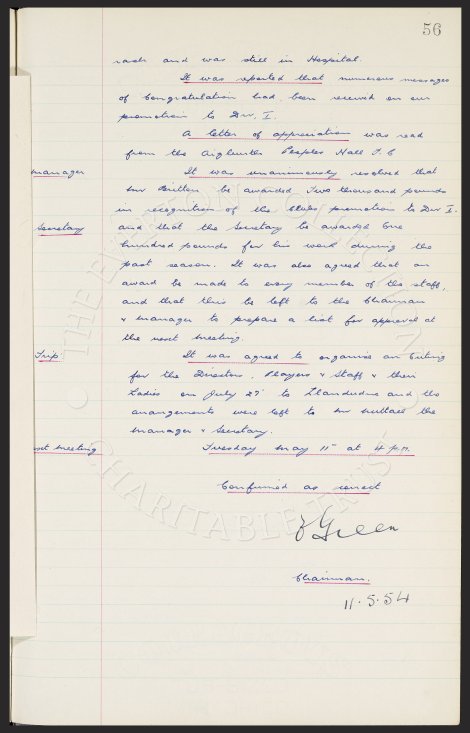 56
and was still in Hospital.
It was reported that numerous messages
of Congratulation had been received on our
promotion to Div. I.
A letter of appreciation was read
from the Aigburth Peoples Hall F. C
Manager It was unanimously resolved that
Mr Britton be awarded Two thousand pounds
in recognition of the Clubs promotion to Div I.
Secretary and that the Secretary be awarded One
hundred pounds for his work during the
past season. It was also agreed that an
award be made to every member of the staff,
and that this be left to the Chairman
& Manager to prepare a list for approval at
the next meeting.
Trip It was agreed to organise an Outing
for the Directors Players & Staff & their
Ladies on July 27th to Llandudno and the
arrangements were left to Mr Nuttall the
Manager & Secretary.
next meeting Tuesday May 11th at 4 p.m.
Confirmed as correct
Green
Chairman.
11.5.54
CHARITABLE TRUST